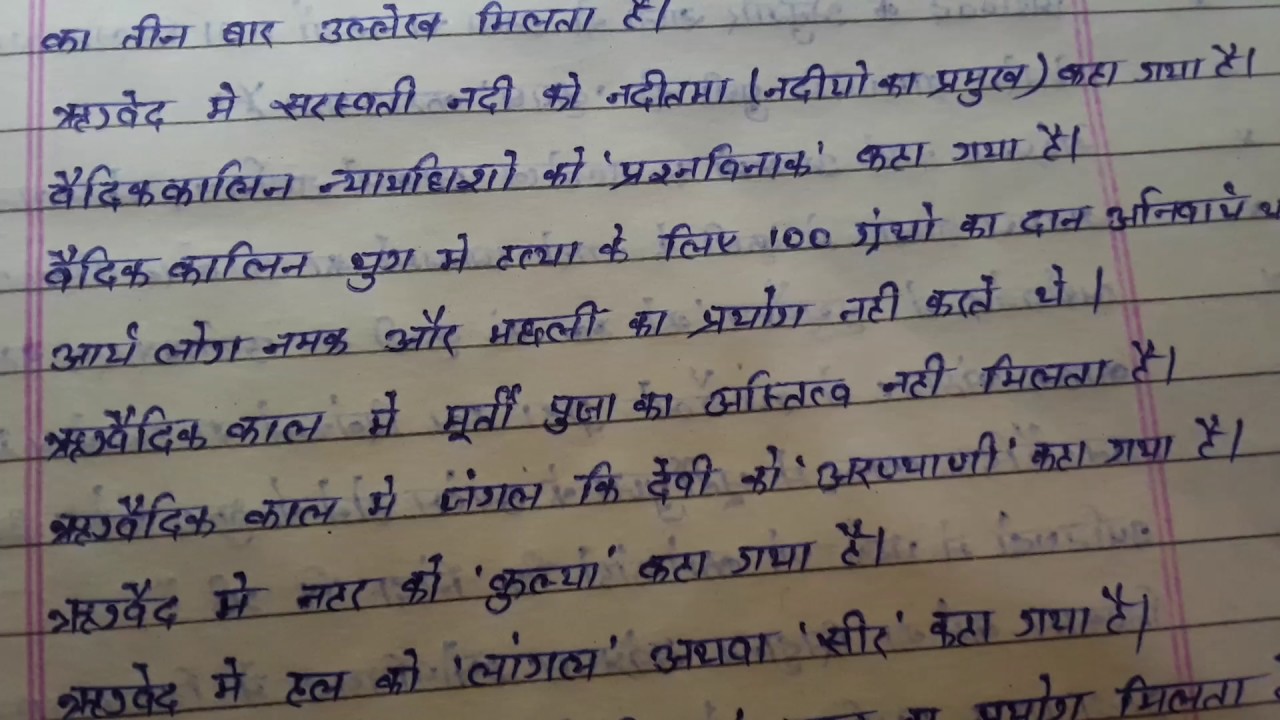 का तीन बार उल्लेख मिलता है।
ऋग्वेद मे सरस्वती नदी को नदीतमा (नदीयो का प्रमुख) कहा गया है।
वैदिककालिन न्यायधिशो को 'प्रश्नविनाक' कहा गया है।
वैदिक कालिन युग मे हत्या के लिए 100 ग्रंथो का दान अनिवार्य
आर्य लोग नमक और मछली का प्रयोग नही करते थे।
ऋग्वैदिक काल मे मूर्ती पुजा का अस्तित्व नही मिलता है।
ऋग्वैदिक काल मे जंगल कि देवी को 'अरण्याणी' कहा गया है।
ऋग्वैद मे नहर को 'कुल्या' कहा गया है।
ऋग्वेद मे हल को 'लांगल' अथवा 'सीर' कहा गया है।
प्रयोग मिलता